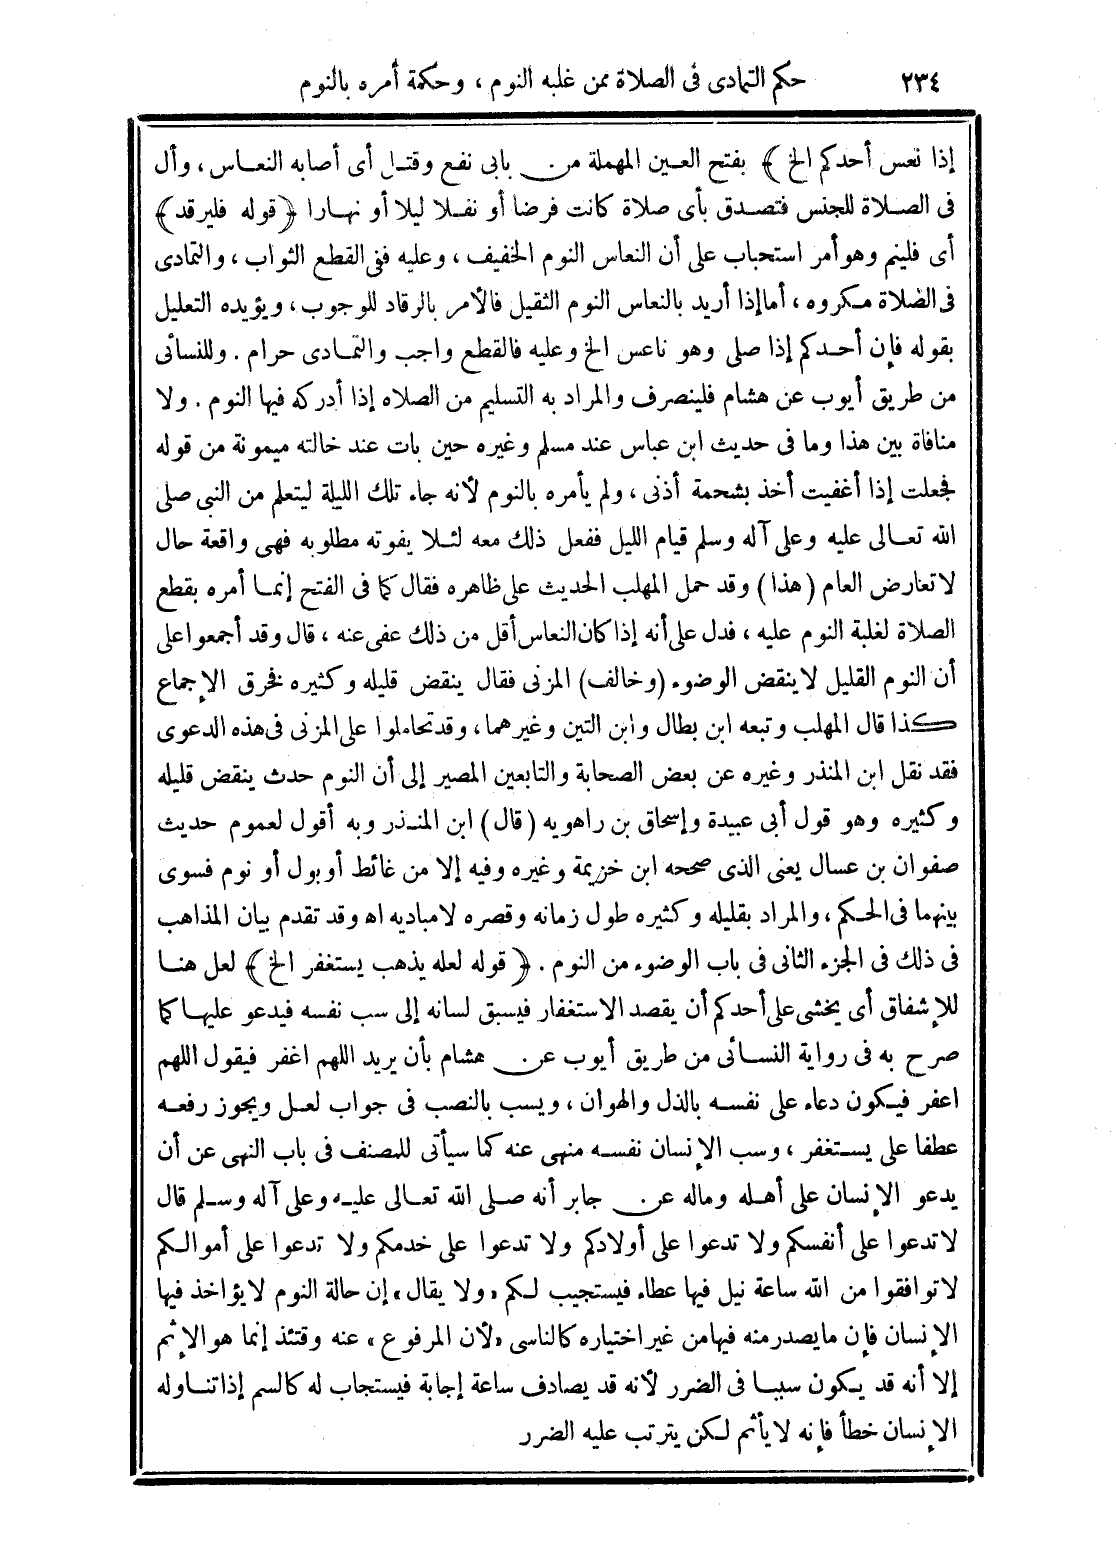 ٢٣٤ حكم التمادى فى الصلاة ممن غلبه النوم ، وحكمة أمره بالنوم
إذا نعس أحدكم الخ ﴾ بفتح العين المهملة من بابى نفع وقتل أى أصابه النعاس ، وأل
فى الصلاة للجنس فتصدق بأى صلاة كانت فرضا أو نفلا ليلا أو نهارا ﴿قوله فليرقد﴾
أى فلينم وهو أمر استحباب على أن النعاس النوم الخفيف ، وعليه ففى القطع الثواب ، والتمادى
فى الصلاة مكروه ، أما إذا أريد بالنعاس النوم الثقيل فالأمر بالرقاد للوجوب ، ويؤيده التعليل
بقوله فإن أحدكم إذا صلى وهو ناعس الخ وعليه فالقطع واجب والتمادى حرام . وللنسائى
من طريق أيوب عن هشام فلينصرف والمراد به التسليم من الصلاه إذا أدركه فيها النوم . ولا
منافاة بين هذا وما فى حديث ابن عباس عند مسلم وغيره حين بات عند خالته ميمونة من قوله
فجعلت إذا أغفيت أخذ بشحمة أذنى ، ولم يأمره بالنوم لأنه جاء تلك الليلة ليتعلم من النبى صلى
الله تعالى عليه وعلى آله وسلم قيام الليل ففعل ذلك معه لئلا يفوته مطلوبه فهى واقعة حال
لا تعارض العام (هذا) وقد حمل المهلب الحديث على ظاهره فقال كما فى الفتح إنما أمره بقطع
الصلاة لغلبة النوم عليه ، فدل على أنه إذا كان النعاس أقل من ذلك عفى عنه ، قال وقد أجمعوا على
أن النوم القليل لا ينقض الوضوء (وخالف) المزنى فقال ينقض قليله وكثيره فخرق الإجماع
كذا قال المهلب وتبعه ابن بطال وابن التين وغيرهما ، وقد تحاملوا على المزنى فى هذه الدعوى
فقد نقل ابن المنذر وغيره عن بعض الصحابة والتابعين المصير إلى أن النوم حدث ينقض قليله
وكثيره وهو قول أبى عبيدة وإسحاق بن راهويه (قال) ابن المنذر وبه أقول لعموم حديث
صفوان بن عسال يعنى الذى صححه ابن خزيمة وغيره وفيه إلا من غائط أو بول أو نوم فسوى
بينهما فى الحكم ، والمراد بقليله وكثيره طول زمانه وقصره لا مباديه اه وقد تقدم بيان المذاهب
فى ذلك فى الجزء الثانى فى باب الوضوء من النوم . ﴿ قوله لعله يذهب يستغفر الخ ﴾ لعل هنا
للإشفاق أى يخشى على أحدكم أن يقصد الاستغفار فيسبق لسانه إلى سب نفسه فيدعو عليها كما
صرح به فى رواية النسائى من طريق أيوب عن هشام بأن يريد اللهم اغفر فيقول اللهم
اعفر فيكون دعاء على نفسه بالذل والهوان ، ويسب بالنصب فى جواب لعل ويجوز رفعه
عطفا على يستغفر ، وسب الإنسان نفسه منهى عنه كما سيأتى للمصنف فى باب النهى عن أن
يدعو الإنسان على أهله وماله عن جابر أنه صلى الله تعالى عليه وعلى آله وسلم قال
لا تدعوا على أنفسكم ولا تدعوا على أولادكم ولا تدعوا على خدمكم ولا تدعوا على أموالكم
لا توافقوا من الله ساعة نيل فيها عطاء فيستجيب لكم «ولا يقال» إن حالة النوم لا يؤاخذ فيها
الإنسان فإن ما يصدر منه فيها من غير اختياره كالناسى «لأن المرفوع» عنه وقتئذ إنما هو الإثم
إلا أنه قد يكون سببا فى الضرر لأنه قد يصادف ساعة إجابة فيستجاب له كالسم إذا تناوله
الإنسان خطأ فإنه لا يأثم لكن يترتب عليه الضرر